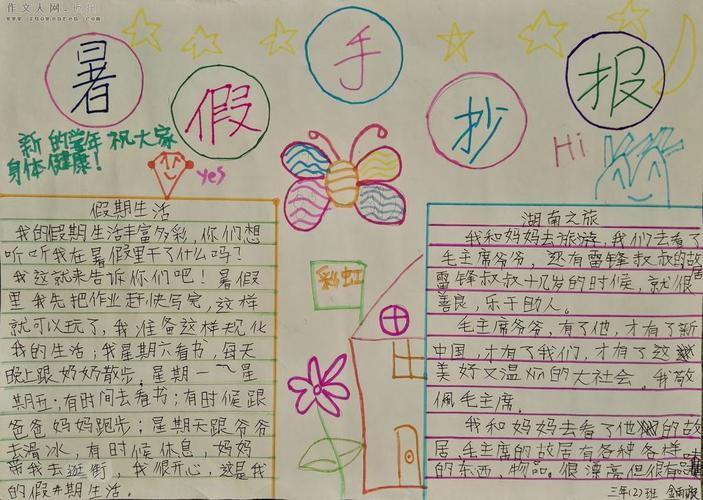 作文人网
www.zuowenren.com
暑假手抄报
新的学年祝大家
身体健康！
yes
Hi
假期生活
我的假期生活丰富多彩，你们想
听听我在暑假里干了什么吗？
我这就来告诉你们吧！暑假
里我先把作业赶快写完，这样
就可以玩了，我准备这样规化
我的生活；我星期六看书，每天
晚上跟奶奶散步。星期一～星
期五；有时间去看书；有时候跟
爸爸妈妈跑步；星期天跟爷爷
去滑冰，有时候休息，妈妈
带我去逛街，我很开心，这是我
的假期生活。
彩虹
湖南之旅
我和妈妈去旅游，我们去看了
毛主席爷爷，还有雷锋叔叔的故居
雷锋叔叔十几岁的时候，就很
善良，乐于助人。
毛主席爷爷，有了他，才有了新
中国，才有了我们，才有了这
美好又温的大社会。我敬
佩毛主席。
我和妈妈去看了他的故
居，毛主席的故居有各种各样
的东西，物品。很漂亮但很有
三年(2)班